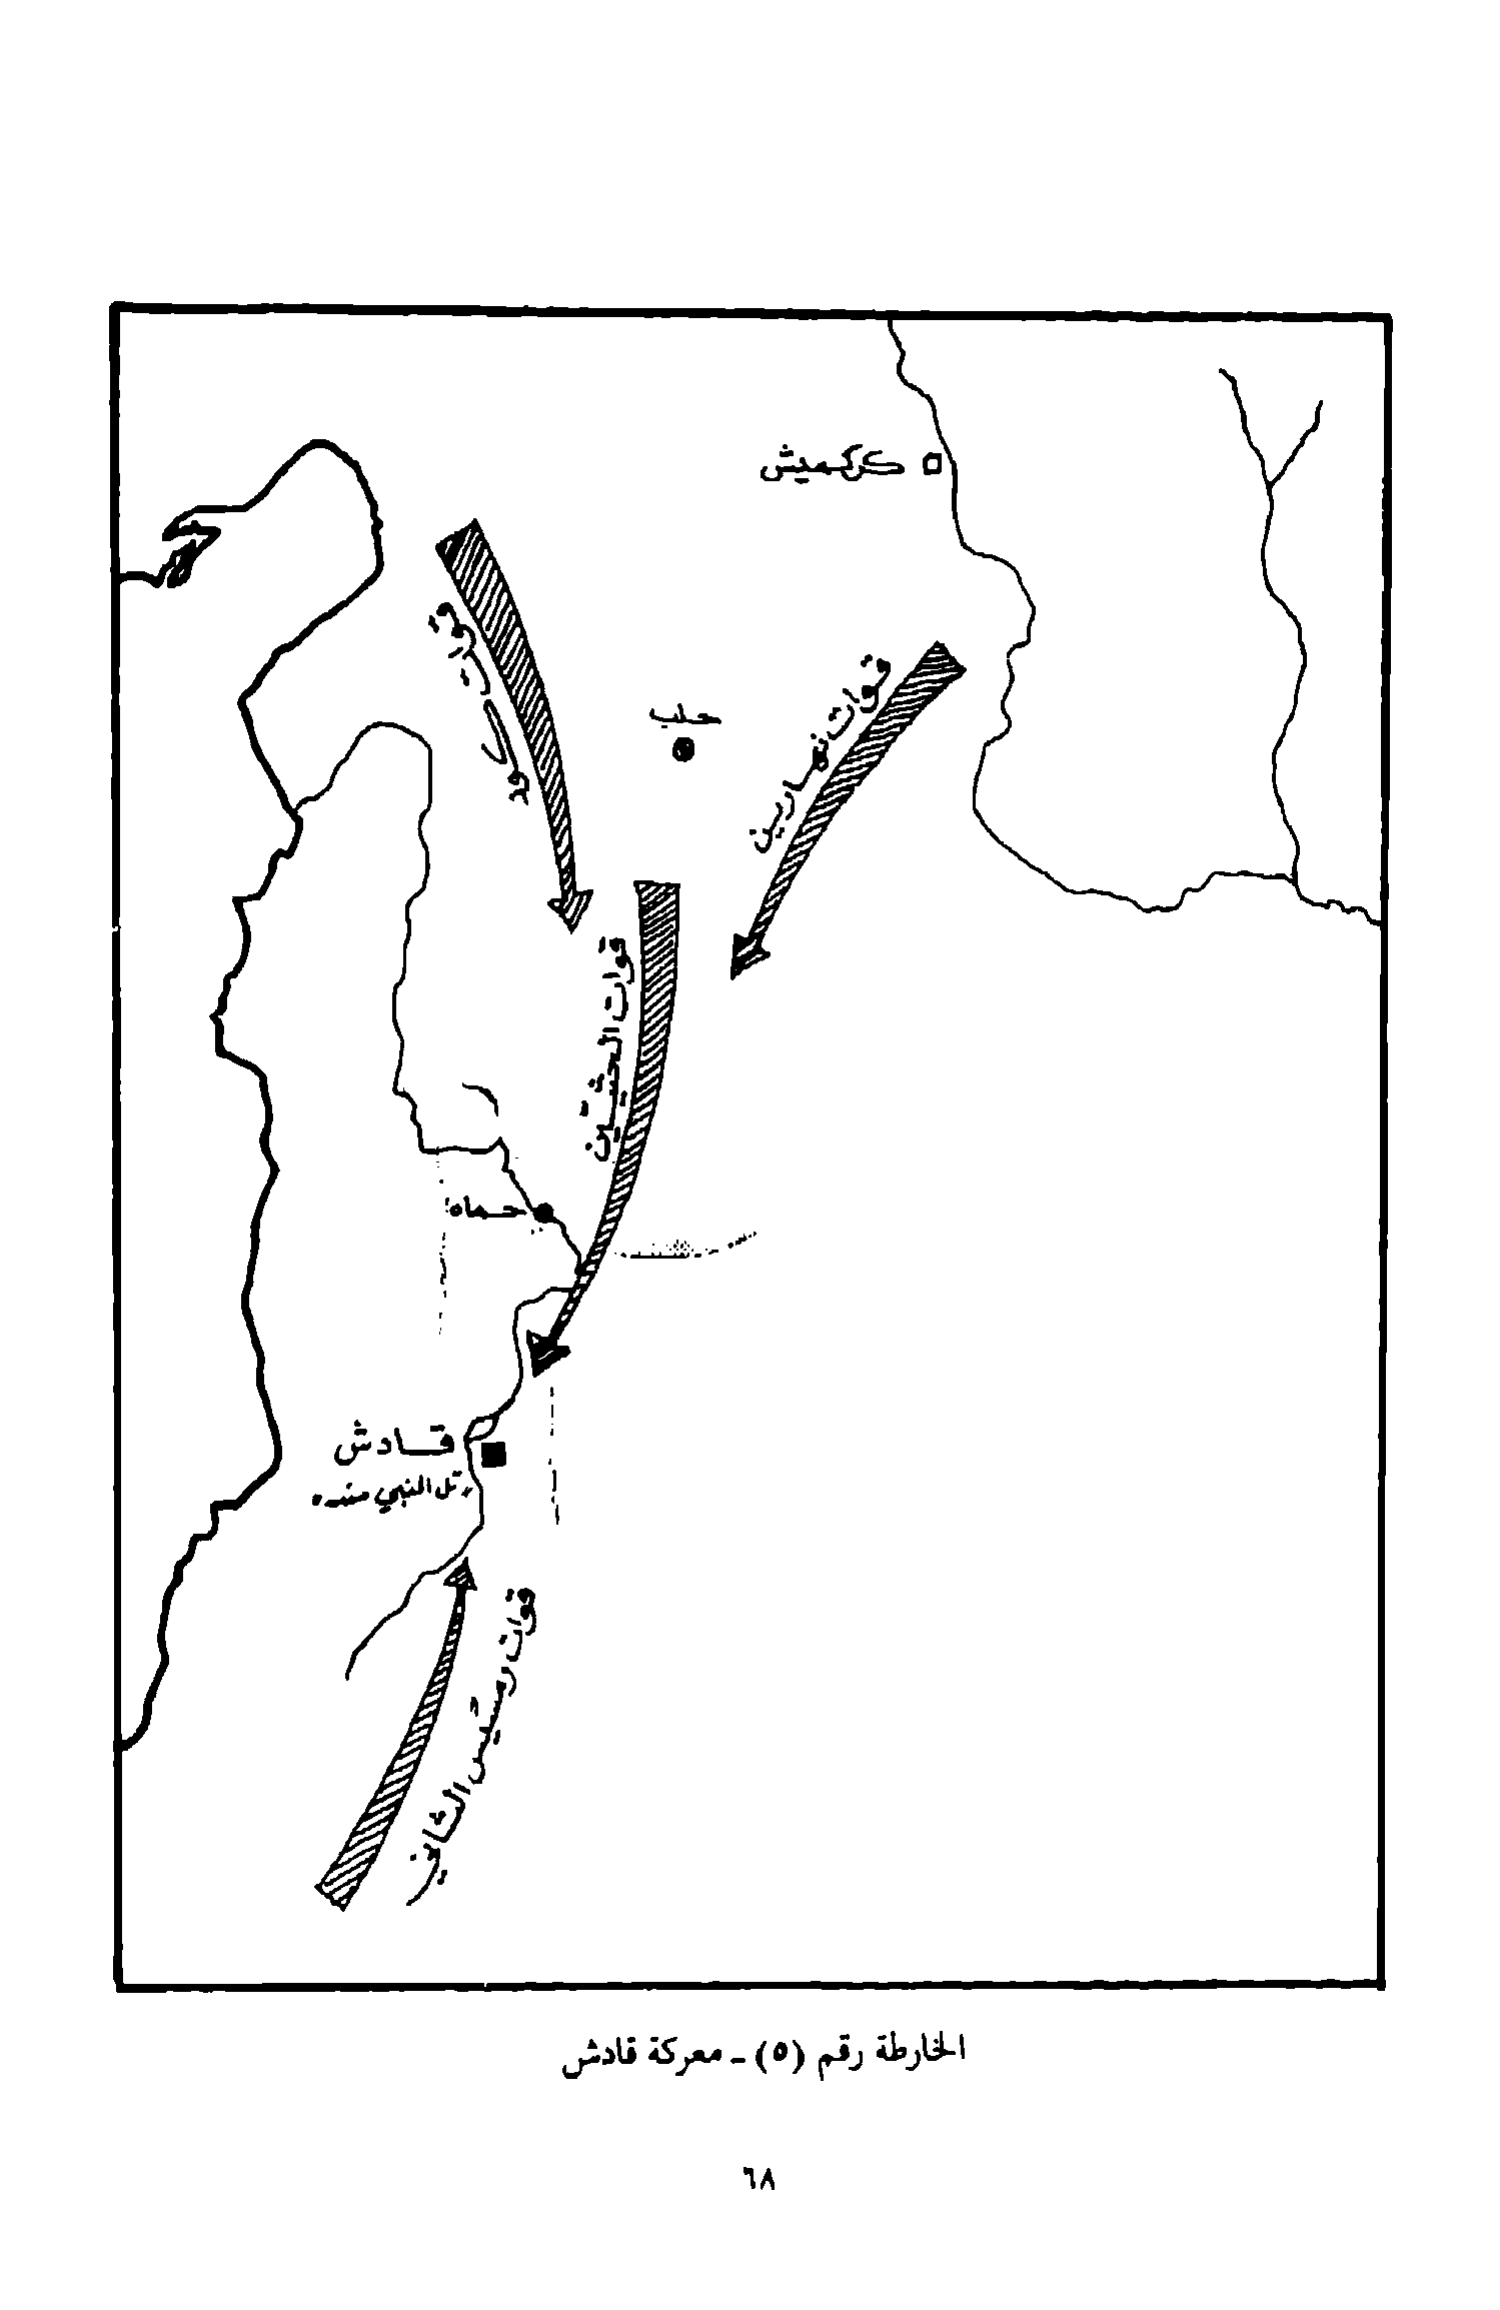 كركميش
قوات كركي
حلب
قوات نهارين
قوات الحثيين
حماه
قادش
تل النبي منده
قوات رمسيس الثاني
الخارطة رقم (٥) - معركة قادش
٦٨